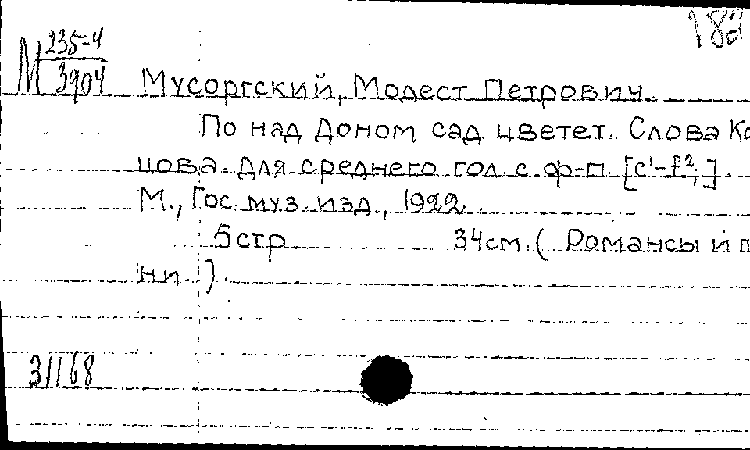 182
М 235-4
3904
Мусоргский, Модест Петрович.
По над Доном сад цветет. Слова Ко
цова. Для среднего гол. с ф-п. [c¹-f²].
М., Гос. муз. изд., 1922.
5 стр 34 см. ( Романсы и п
ни ).
31168